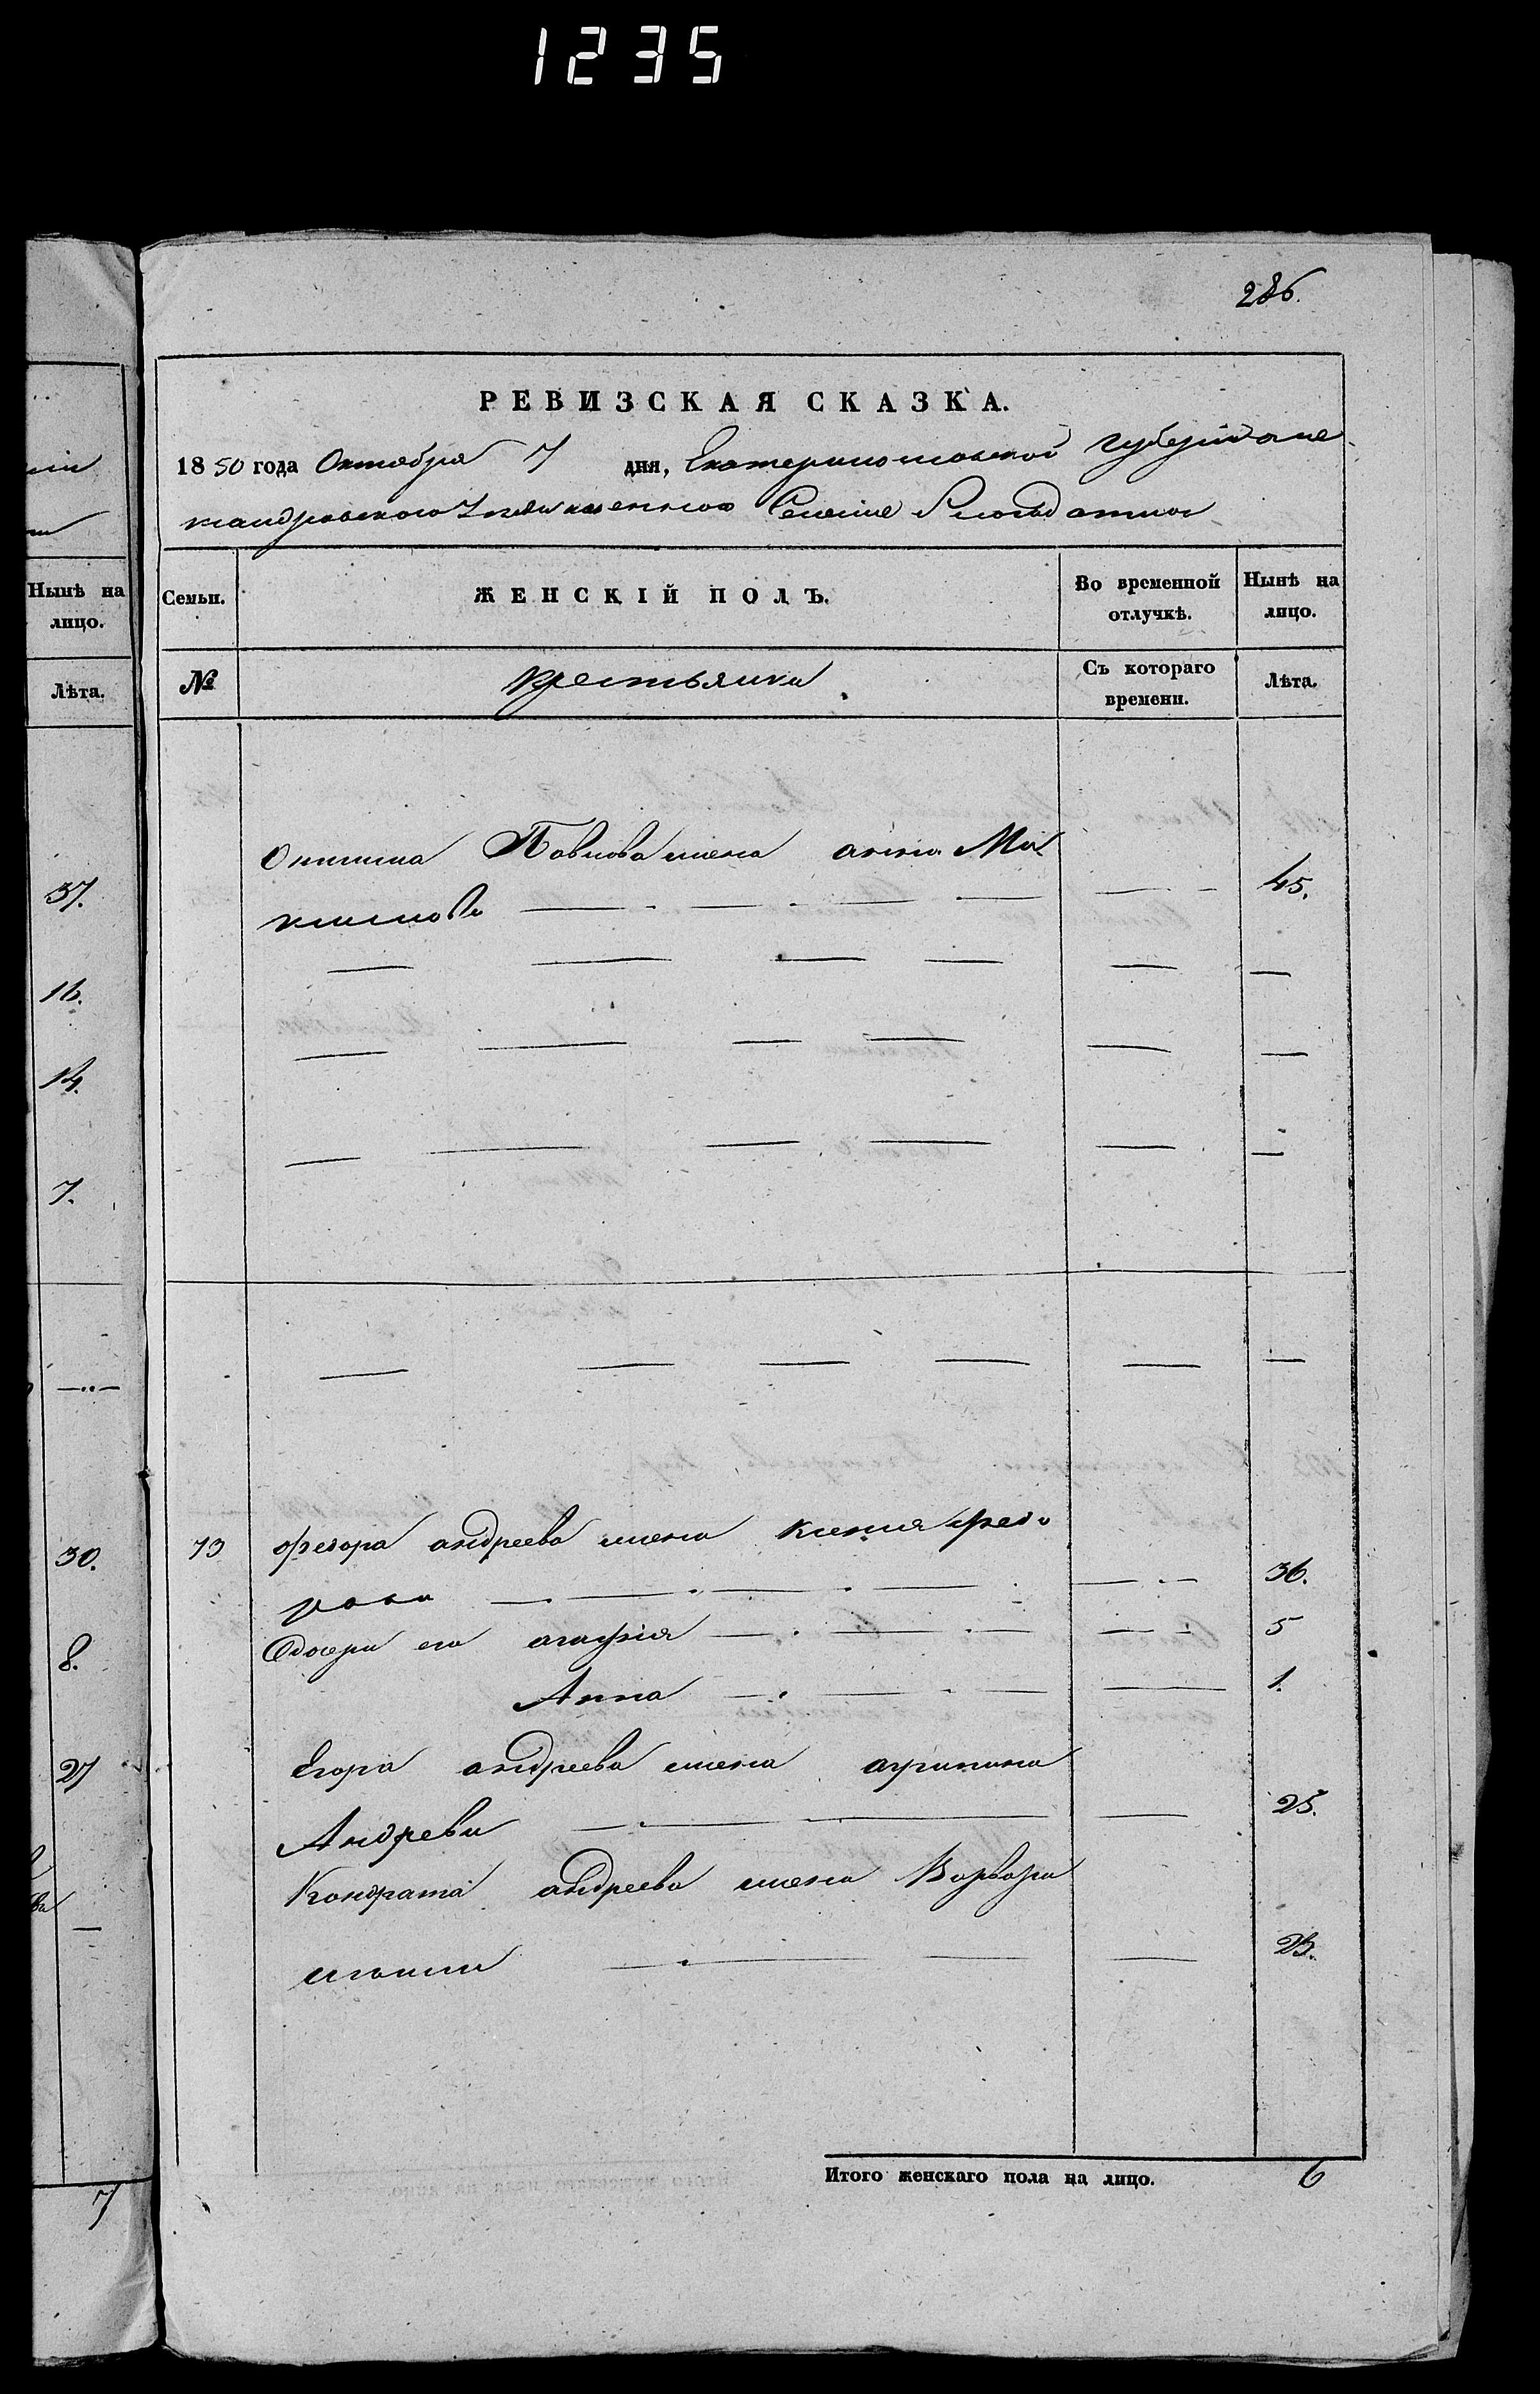 1235
286.
РЕВИЗСКАЯ СКАЗКА.
1850 года Октября 7 дня, Екатеринославской губерніи Але
ксандровского Селеніе
Семьи.
ЖЕНСКІЙ ПОЛЪ.
Во временной отлучкѣ.
Нынѣ на лицо.
№
Крестьянки
Съ котораго времени.
Лѣта.
Павлова жена анна Ма
ксимова — — — — 45.
— — — — — —
— — — — — —
— — — — — —
— — — — — —
73 Федора андреева жена Ксения Федо
рова — — — — 36.
Дочери его агафия — — — 5
Анна — — — 1.
Егора андреева жена агрипина
Андреева — — — 25.
Кондрата андреева жена Варвара
— — — 23.
Итого женскаго пола на лицо. 6
Нынѣ на
лицо.
Лѣта.
37.
16.
14.
7.
30.
8.
27
7